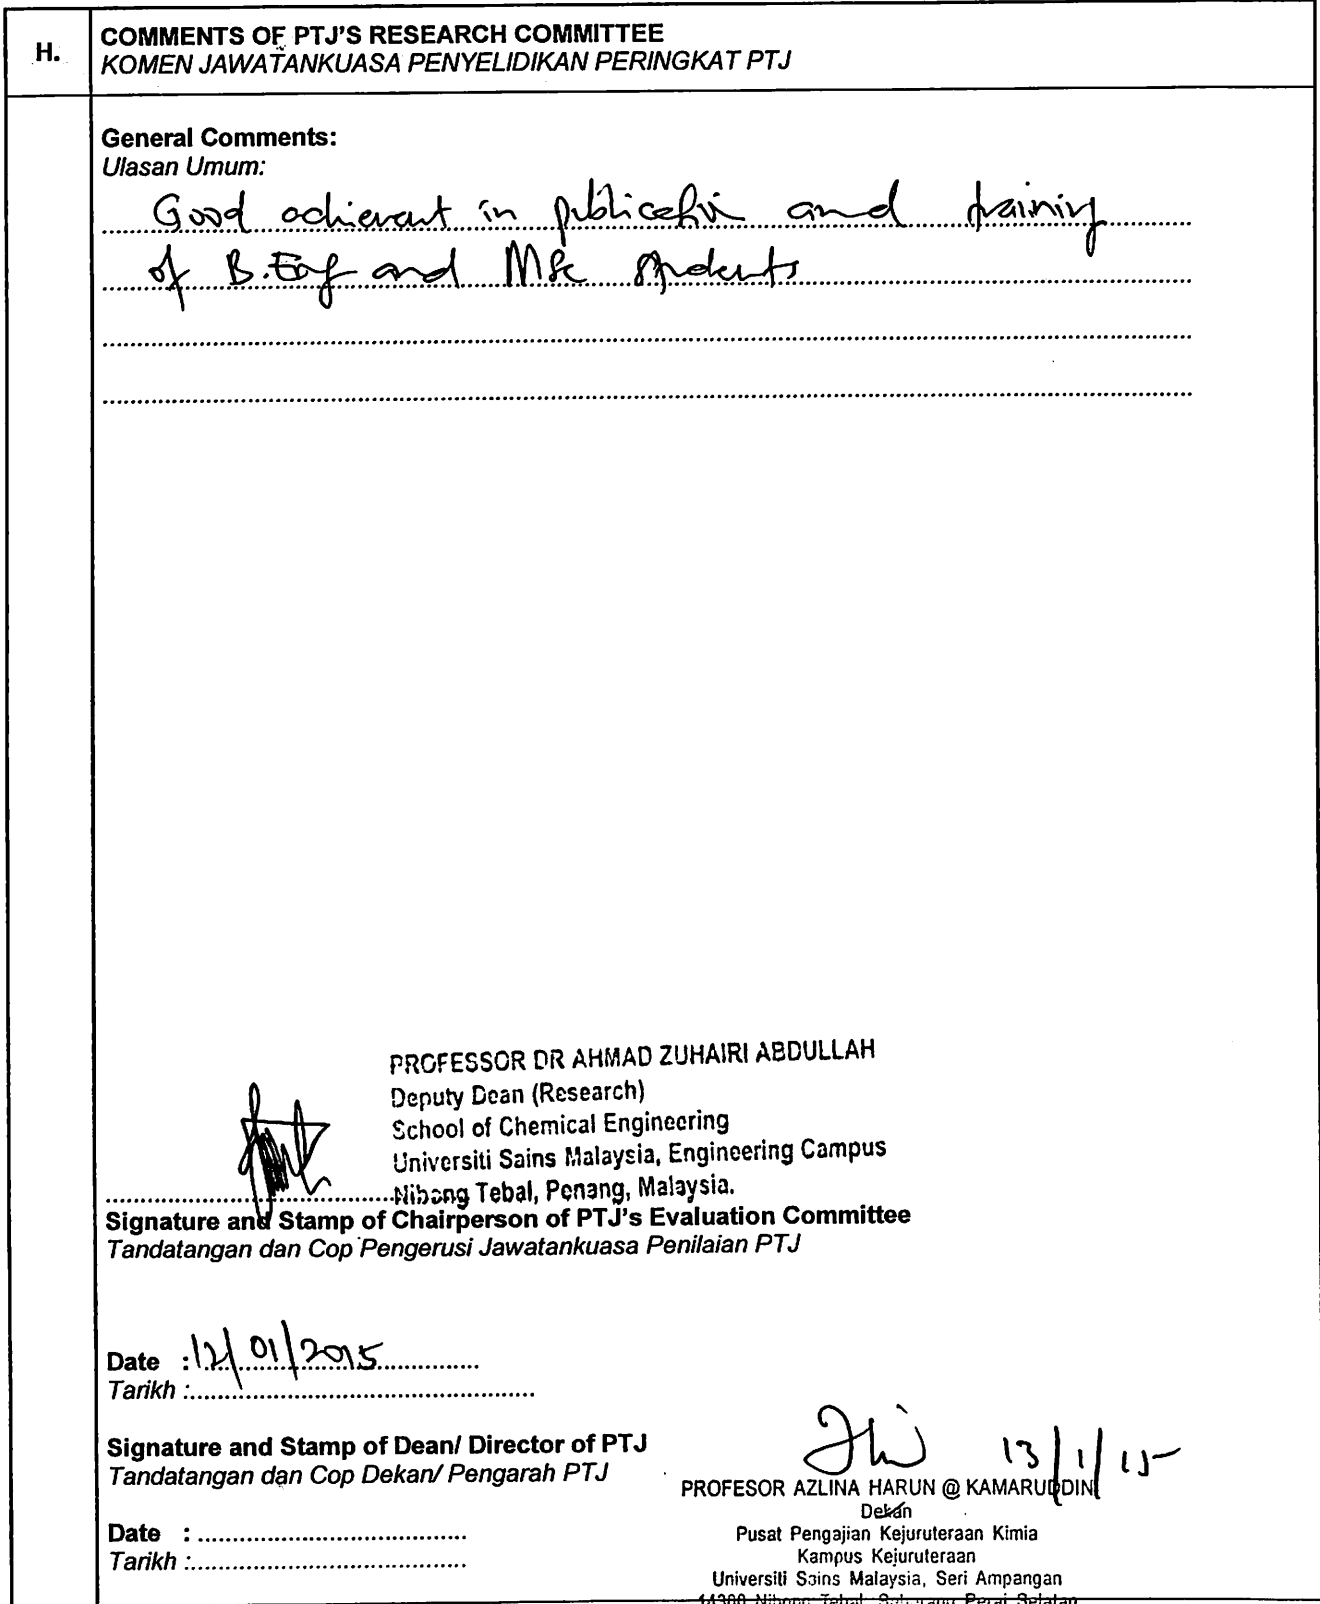 H.
COMMENTS OF PTJ'S RESEARCH COMMITTEE
KOMEN JAWATANKUASA PENYELIDIKAN PERINGKAT PTJ
General Comments:
Ulasan Umum:
Good achievement in publication and training
of B.Eng and MSc students
PROFESSOR DR AHMAD ZUHAIRI ABDULLAH
Deputy Dean (Research)
School of Chemical Engineering
Universiti Sains Malaysia, Engineering Campus
Nibong Tebal, Penang, Malaysia.
Signature and Stamp of Chairperson of PTJ's Evaluation Committee
Tandatangan dan Cop Pengerusi Jawatankuasa Penilaian PTJ
Date : 12/01/2015
Tarikh :
Signature and Stamp of Dean/ Director of PTJ
Tandatangan dan Cop Dekan/ Pengarah PTJ
13/1/15
PROFESOR AZLINA HARUN @ KAMARUDDIN
Dekan
Pusat Pengajian Kejuruteraan Kimia
Kampus Kejuruteraan
Universiti Sains Malaysia, Seri Ampangan
14300 Nibong Tebal, Seberang Perai Selatan
Date :
Tarikh :